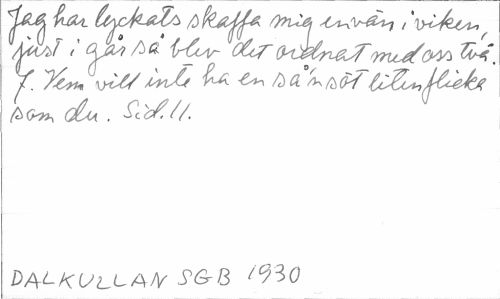 Jag har lyckats skaffa mig en vän i viken,
just i går så blev det ordnat med oss två.
7. Vem vill inte ha en så'n söt liten flicka
som du. Sid. 11.
DALKULLAN SGB 1930